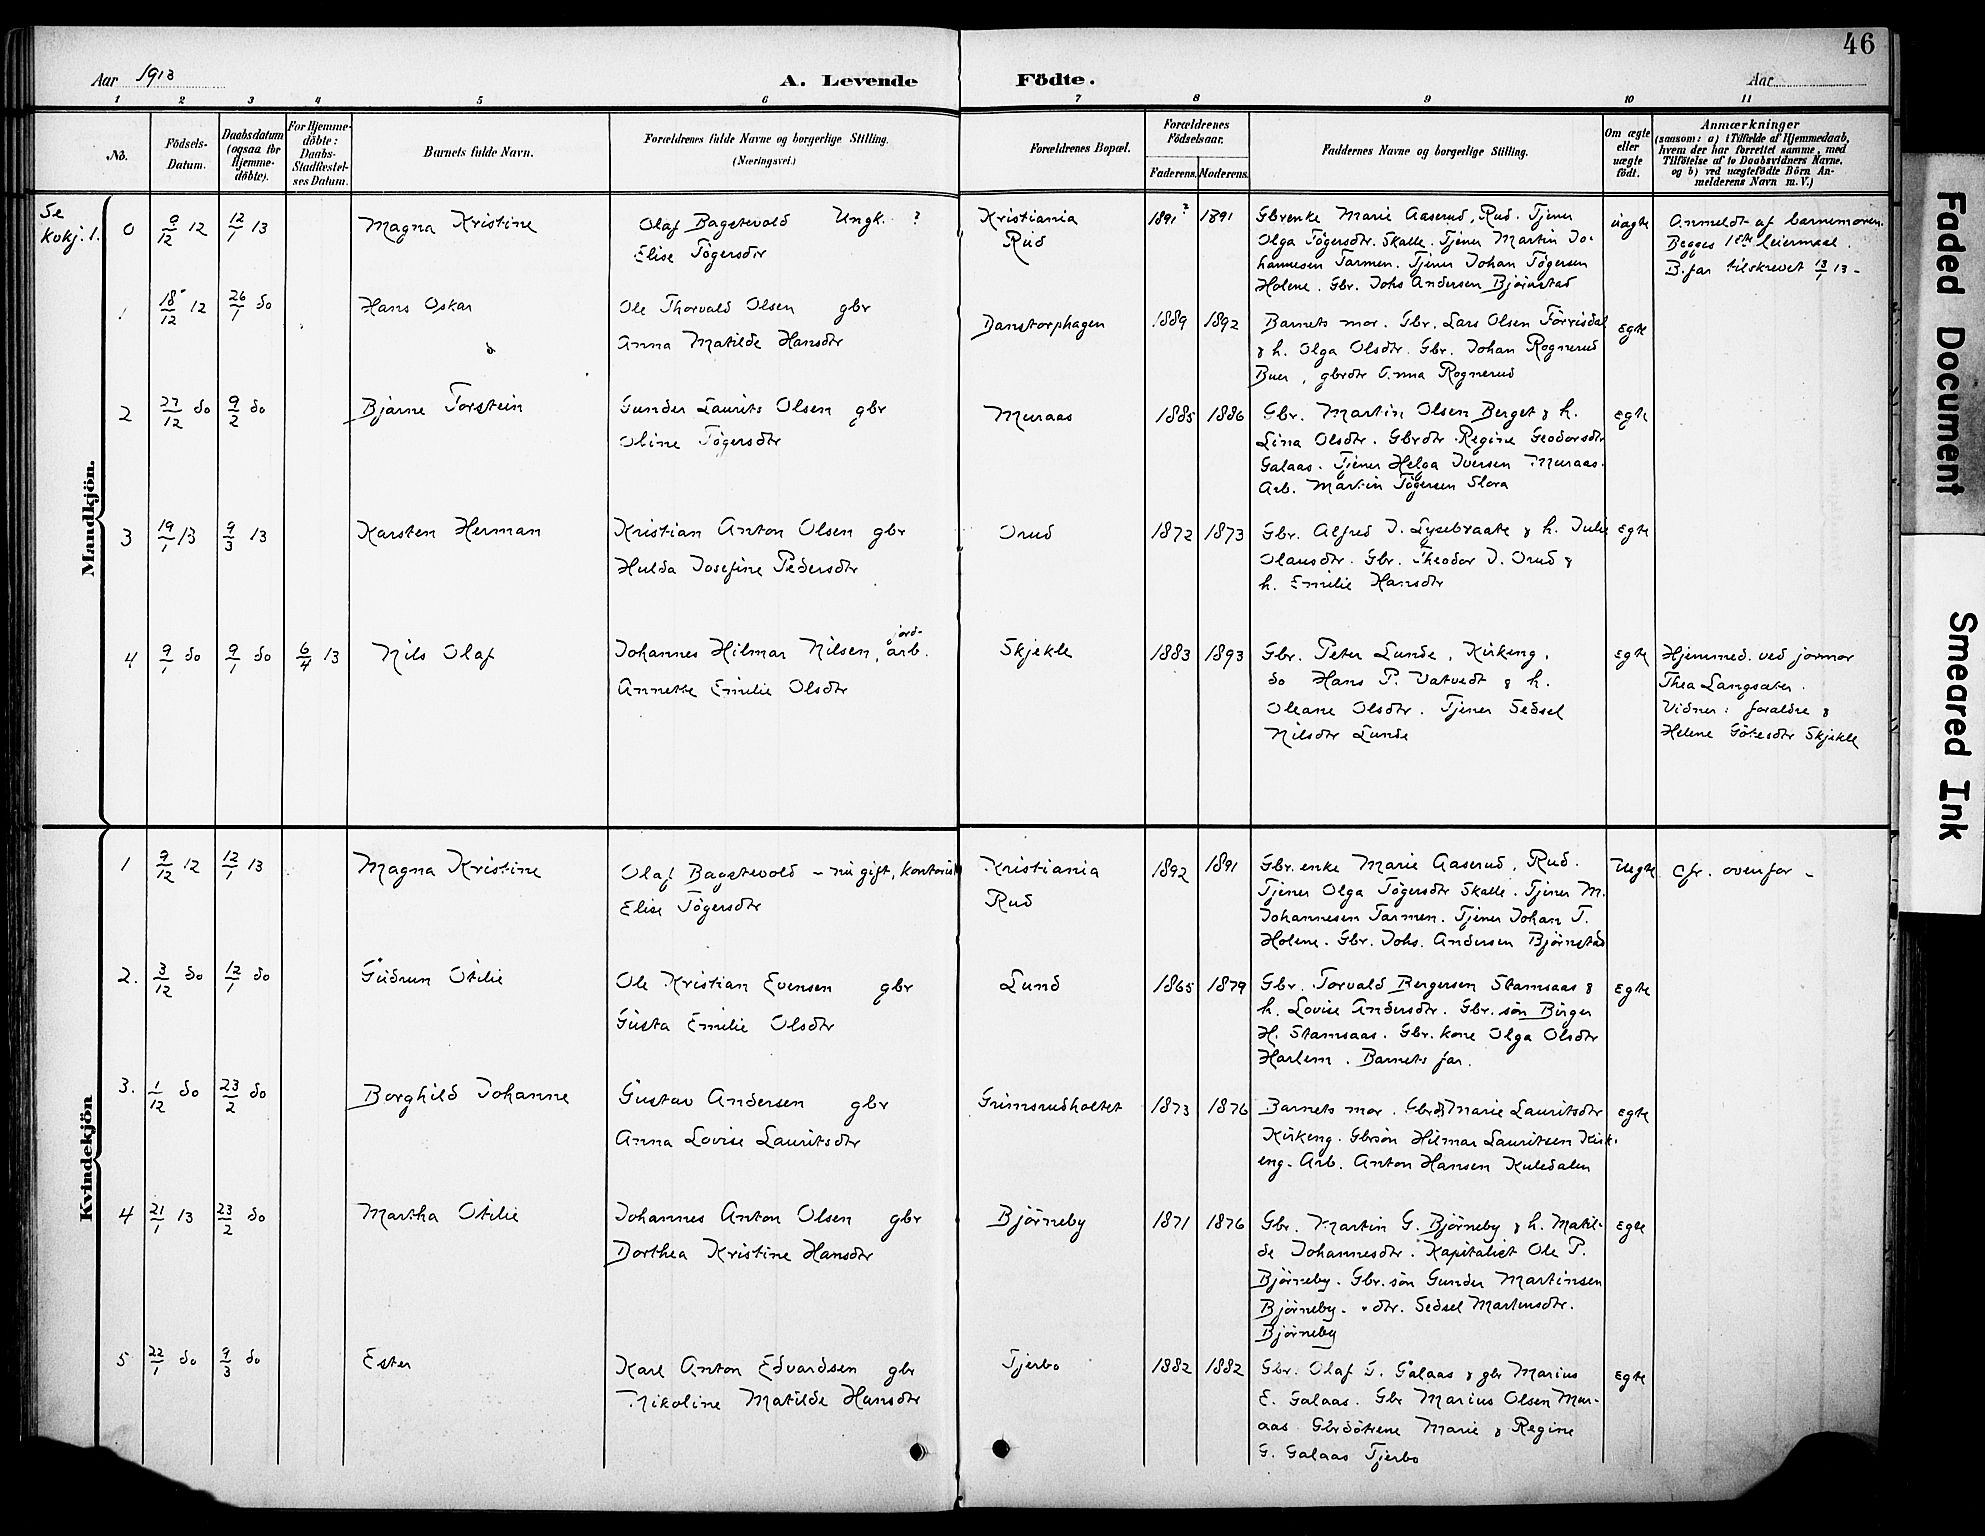 46
Aar 1913
A. Levende
Födte.
Aar
1 2 3 4 5 6 7 8 9 10 11
No.
Födsels-
Datum.
Daabsdatum
(ogsaa for
Hjemme-
döbte).
For Hjemme-
döbte:
Daabs-
Stadfæstel-
ses Datum.
Barnets fulde Navn.
Forældrenes fulde Navne og borgerlige Stilling.
(Næringsvei.)
Forældrenes Bopæl.
Forældrenes
Födselsaar.
Faderens. Moderens.
Faddernes Navne og borgerlige Stilling.
Om ægte
eller
uægte
födt.
Anmærkninger
(saasom: a) i Tilfælde af Hjemmedaab,
hvem der har forrettet samme, med
Tilföielse af to Daabsvidners Navne,
og b) ved uægtefödte Börn An-
melderens Navn m. V.)
Mandkjön.
Se
kvkj. 1.
0 9/12 12 12/1 13 Magna Kristine
Olaf Bagstevold Ungk. ?
Elise Tögersdtr
Kristiania
Rud
1891? 1891
Gbrenke Marie Aaserud, Rud. Tjener
Olga Tögersdtr. Skalle. Tjener Martin Jo-
hannesen Tarmen. Tjener Johan Tögersen
Holene. Gbr. Johs Andersen Björnstad
uægte
Anmeldt af barnemoren.
Begges 1ste leiermaal.
B.far tilskrevet 13/1 13-
1 18/12 12 26/1 do Hans Oskar
Ole Thorvald Olsen gbr
Anna Matilde Hansdtr
Danstorphagen
1889 1892
Barnets mor. Gbr. Lars Olsen Törrisdal
& h. Olga Olsdtr. Gbr. Johan Rognerud
Buer, gbrdtr Anna Rognerud
Egte
2 27/12 do 9/2 do Bjarne Torstein
Gunder Laurits Olsen gbr
Oline Tögersdtr
Muraas
1885 1886
Gbr. Martin Olsen Berget & h.
Lina Olsdtr. Gbrdtr Regine Geodorsdtr
Galaas. Tjener Helga Iversen Muraas.
Arb. Martin Tögersen Slora
Egte
3 19/1 13 9/3 13 Karsten Herman
Kristian Anton Olsen gbr
Hulda Josefine Pedersdtr
Orud
1872 1873
Gbr. Alfred J. Lysebraate & h. Julie
Olausdtr. Gbr. Theodor J. Orud &
h. Emilie Hansdtr
Egte
4 9/1 do 9/1 do 6/4 13 Nils Olaf
Johannes Hilmar Nilsen, jord-
arb.
Annette Emilie Olsdtr
Skjekle
1883 1893
Gbr. Peter Lunde, Kirkeng,
do Hans P. Vatvedt & h.
Oleane Olsdtr. Tjener Sedsel
Nilsdtr Lunde
Egte
Hjemmed. ved jormor
Thea Langsæter.
Vidner: forældre &
Helene Götesdtr Skjekle
Kvindekjön
1 9/12 12 12/1 13 Magna Kristine
Olaf Bagstevold - nu gift, kontorist
Elise Tögersdtr
Kristiania
Rud
1892 1891
Gbr. enke Marie Aaserud, Rud.
Tjener Olga Tögersdtr Skalle. Tjener M.
Johannesen Tarmen. Tjener Johan T.
Holene. Gbr. Johs. Andersen Björnstad
Uegte
Cfr. ovenfor -
2. 3/12 do 12/1 do Gudrun Otilie
Ole Kristian Evensen gbr
Gusta Emilie Olsdtr
Lund
1865 1879
Gbr. Torvald Bergersen Stamsaas &
h. Lovise Andersdtr. Gbr. sön Birger
H. Stamsaas. Gbr. kone Olga Olsdtr
Harlem. Barnets far.
Egte
3. 1/12 do 23/2 do Borghild Johanne
Gustav Andersen gbr
Anna Lovise Lauritsdtr
Grimsrudholtet
1873 1876
Barnets mor. Gbrdtr Marie Lauritsdtr
Kirkeng. Gbrsön Hilmar Lauritsen Kirk-
eng. Arb. Anton Hansen Kuledalen
Egte
4 21/1 13 23/2 do Martha Otilie
Johannes Anton Olsen gbr
Dorthea Kristine Hansdtr
Björneby
1871 1876
Gbr. Martin G. Björneby & h. Matil-
de Johannesdtr. Kapitalist Ole P.
Björneby. Gbr. sön Gunder Martinsen
Björneby. " dtr. Sedsel Martinsdtr.
Björneby
Egte
5 22/1 do 9/3 do Ester
Karl Anton Edvardsen gbr
Nikoline Matilde Hansdtr
Tjerbo
1882 1882
Gbr. Olaf G. Galaas & gbr Marius
E. Galaas. Gbr Marius Olsen Mur-
aas. Gbrdötrene Marie & Regine
G. Galaas Tjerbo
Egte
Faded Document
Smeared Ink